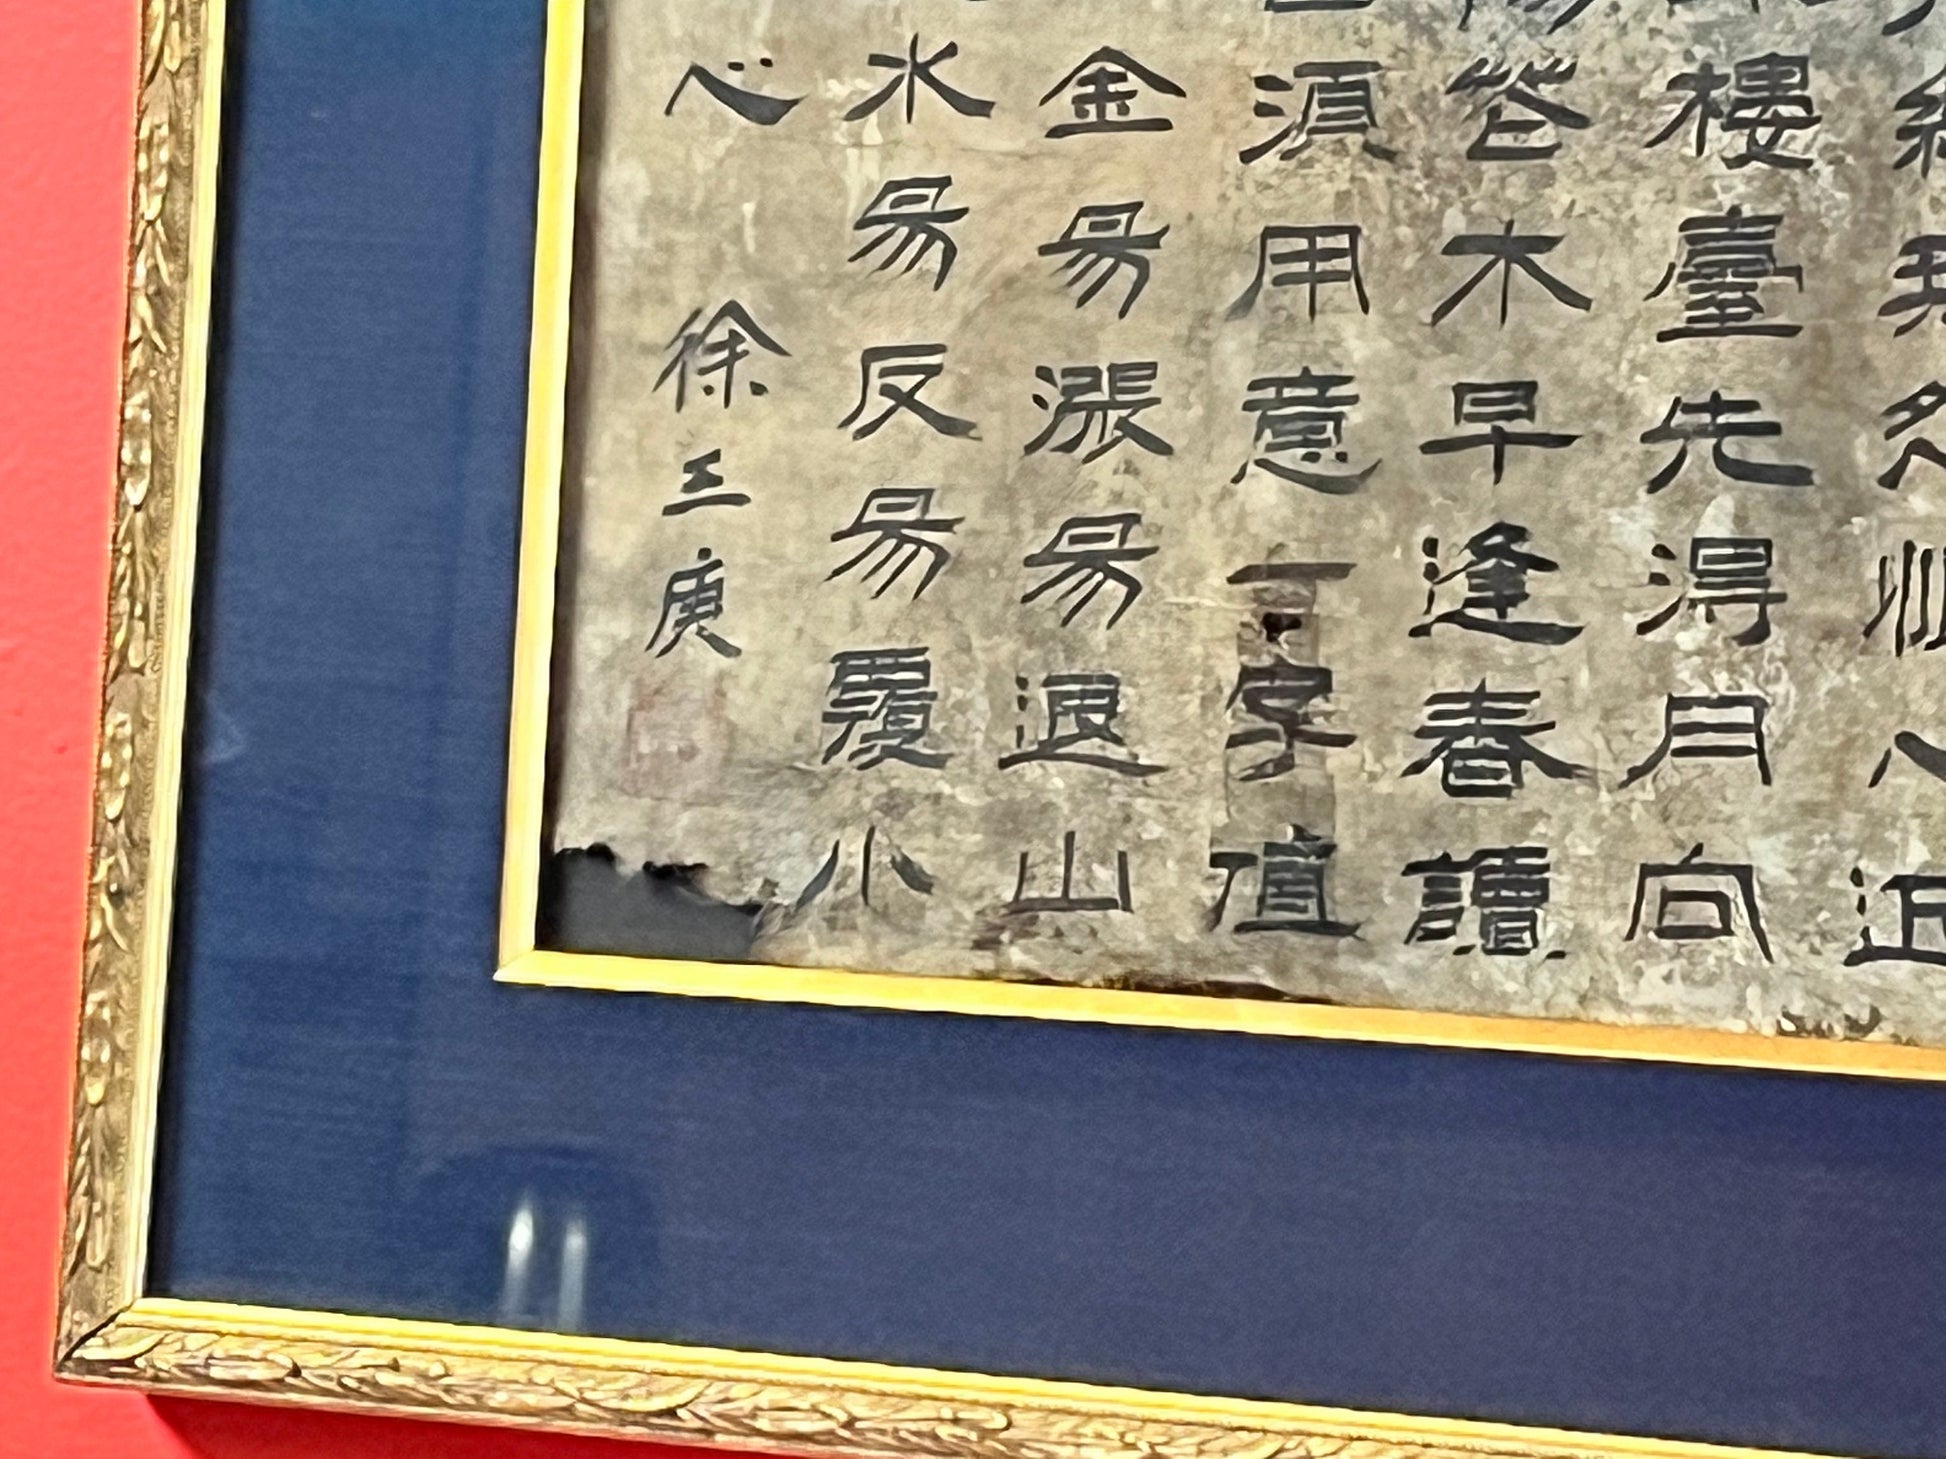 近
樓臺先得月向
花木早逢春讀
須用意一字值
金易漲易退山
水易反易覆小
心
徐三庚